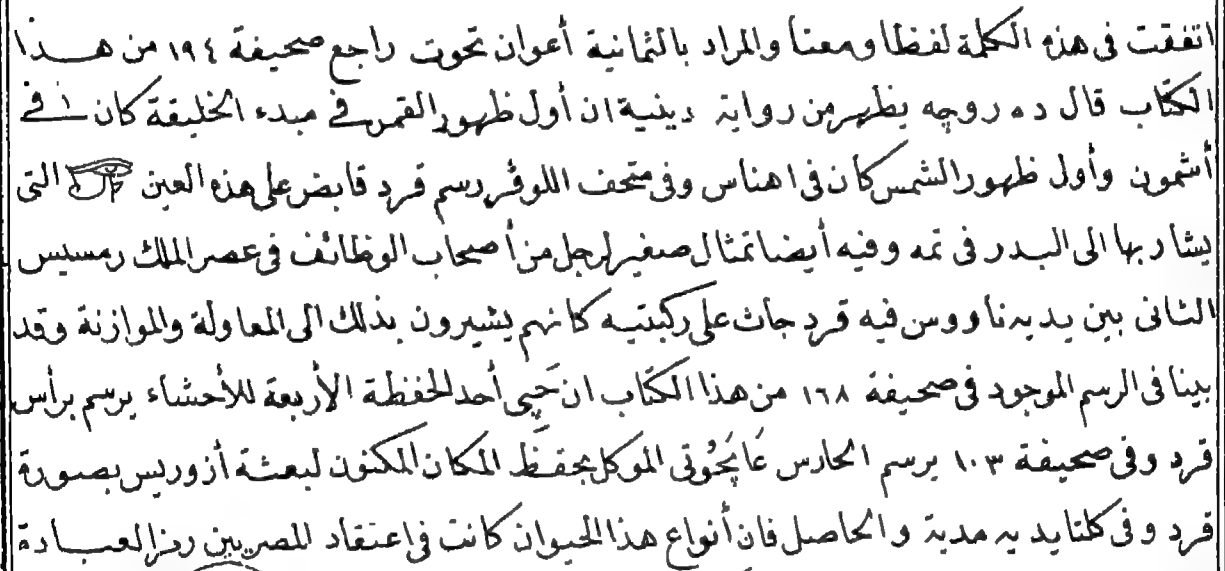 اتفقت فى هذه الكلمة لفظا ومعنا والمراد بالثمانية أعوان تحوت راجع صحيفة ١٩٤ من هذا
الكتاب قال ده روجه يظهر من رواية دينية ان أول ظهور القمر فى مبدء الخليقة كان فى
أشمون وأول ظهور الشمس كان فى اهناس وفى متحف اللوفر رسم قرد قابض على هذه العين التى
يشار بها الى البدر فى تمه وفيه أيضا تمثال صغير لرجل من أصحاب الوظائف فى عصر الملك رمسيس
الثانى بين يديه ناووس فيه قرد جاث على ركبتيه كانهم يشيرون بذلك الى المعاولة والموازنة وقد
بينا فى الرسم الموجود فى صحيفة ١٦٨ من هذا الكتاب ان حپى أحد الحفظة الأربعة للأحشاء يرسم برأس
قرد وفى صحيفة ١٠٣ يرسم الحارس الموكل بحفظ المكان المكنون لبعثة أزوريس بصورة
قرد وفى كلتا يديه مدية والحاصل فان أنواع هذا الحيوان كانت فى اعتقاد المصريين رمز العبادة